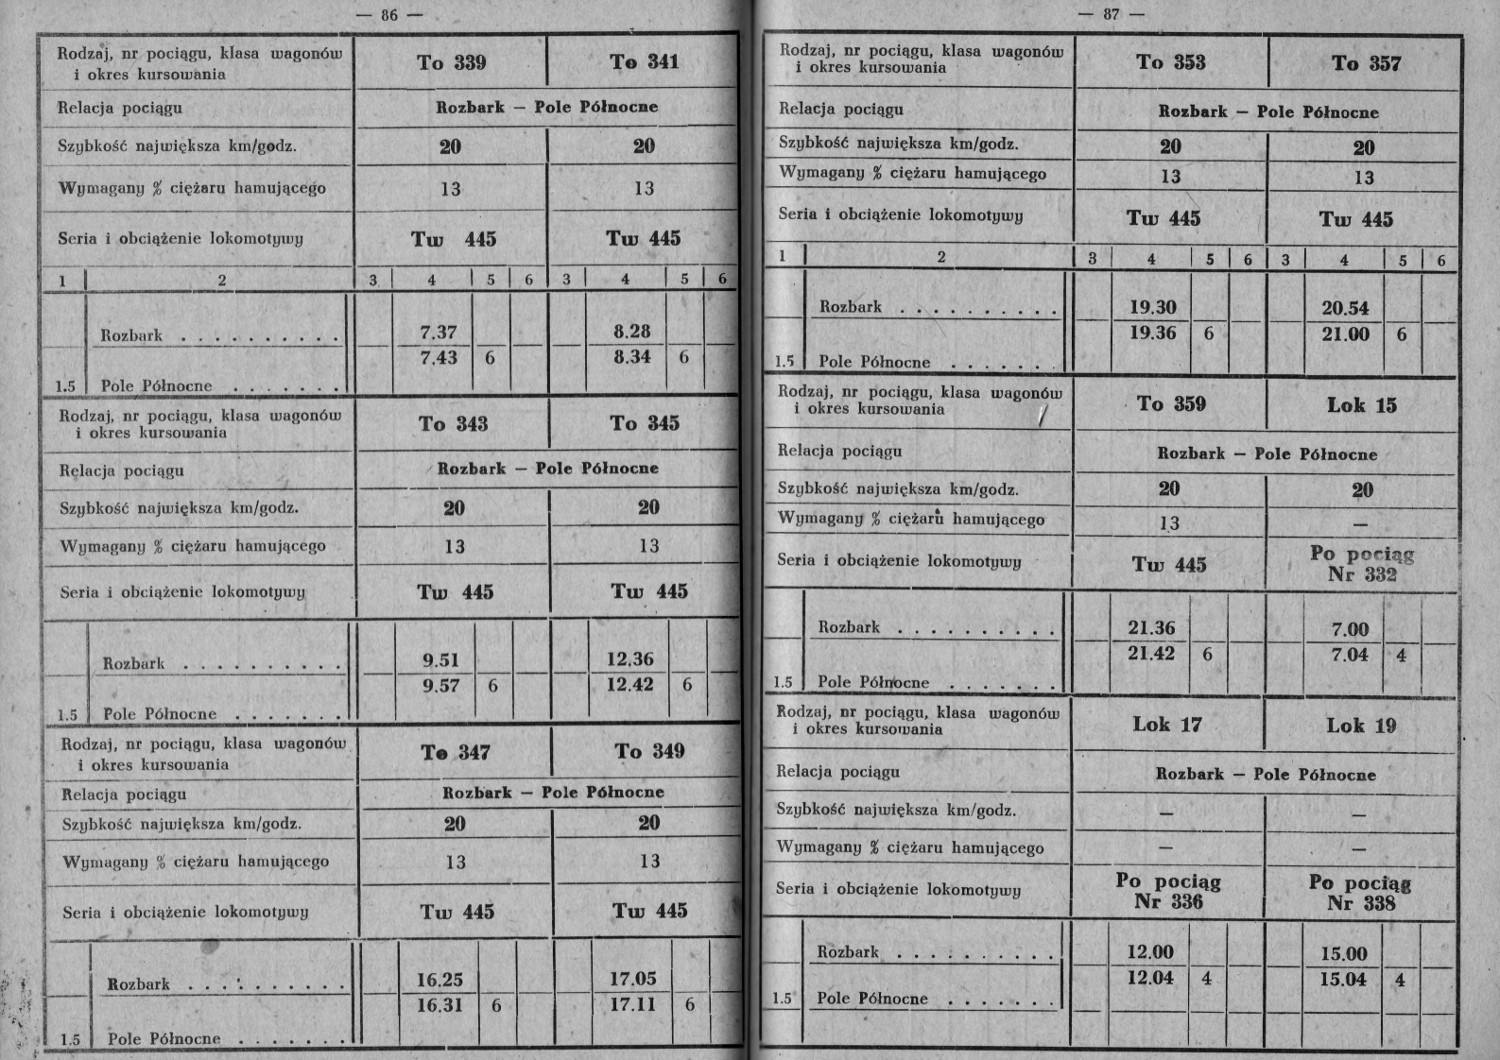 — 86 —
Rodzaj, nr pociągu, klasa wagonów
i okres kursowania
To 339 To 341
Relacja pociągu Rozbark — Pole Północne
Szybkość największa km/godz. 20 20
Wymagany % ciężaru hamującego 13 13
Seria i obciążenie lokomotywy Tw 445 Tw 445
1 2 3 4 5 6 3 4 5 6
Rozbark . . . . . . . . . . 7.37 8.28
7.43 6 8.34 6
1.5 Pole Północne . . . . . . .
Rodzaj, nr pociągu, klasa wagonów
i okres kursowania
To 343 To 345
Relacja pociągu Rozbark — Pole Północne
Szybkość największa km/godz. 20 20
Wymagany % ciężaru hamującego 13 13
Seria i obciążenie lokomotywy Tw 445 Tw 445
Rozbark . . . . . . . . . . 9.51 12.36
9.57 6 12.42 6
1.5 Pole Północne . . . . . . .
Rodzaj, nr pociągu, klasa wagonów
i okres kursowania
To 347 To 349
Relacja pociągu Rozbark — Pole Północne
Szybkość największa km/godz. 20 20
Wymagany % ciężaru hamującego 13 13
Seria i obciążenie lokomotywy Tw 445 Tw 445
Rozbark . . . . . . . . . . 16.25 17.05
16.31 6 17.11 6
1.5 Pole Północne . . . . . . .
— 87 —
Rodzaj, nr pociągu, klasa wagonów
i okres kursowania
To 353 To 357
Relacja pociągu Rozbark — Pole Północne
Szybkość największa km/godz. 20 20
Wymagany % ciężaru hamującego 13 13
Seria i obciążenie lokomotywy Tw 445 Tw 445
1 2 3 4 5 6 3 4 5 6
Rozbark . . . . . . . . . . 19.30 20.54
19.36 6 21.00 6
1.5 Pole Północne . . . . . . .
Rodzaj, nr pociągu, klasa wagonów
i okres kursowania
To 359 Lok 15
Relacja pociągu Rozbark — Pole Północne
Szybkość największa km/godz. 20 20
Wymagany % ciężaru hamującego 13 —
Seria i obciążenie lokomotywy Tw 445 Po pociąg
Nr 332
Rozbark . . . . . . . . . . 21.36 7.00
21.42 6 7.04 4
1.5 Pole Północne . . . . . . .
Rodzaj, nr pociągu, klasa wagonów
i okres kursowania
Lok 17 Lok 19
Relacja pociągu Rozbark — Pole Północne
Szybkość największa km/godz. — —
Wymagany % ciężaru hamującego — —
Seria i obciążenie lokomotywy Po pociąg Po pociąg
Nr 336 Nr 338
Rozbark . . . . . . . . . . 12.00 15.00
12.04 4 15.04 4
1.5 Pole Północne . . . . . . .